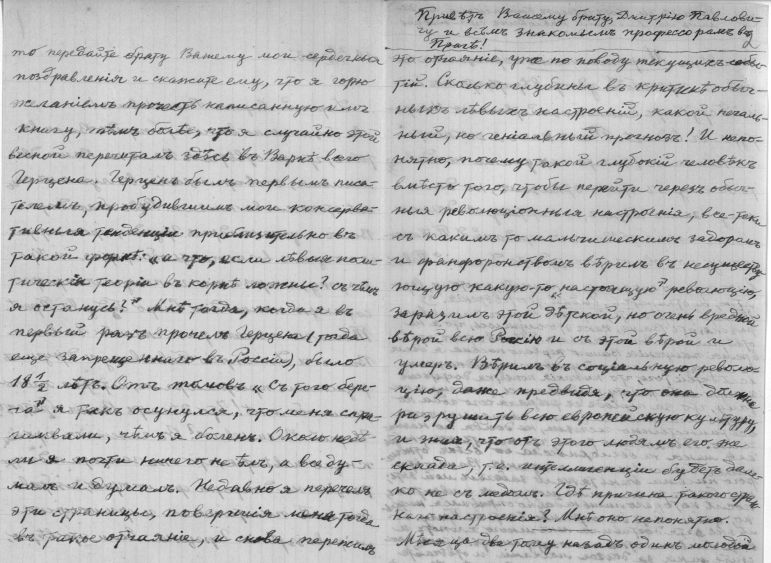 то передайте брату Вашему мои сердечныя
поздравленія и скажите ему, что я горю
желаніемъ прочесть написанную имъ
книгу, тѣмъ болѣе, что я случайно этой
весной перечиталъ здѣсь въ Варнѣ всего
Герцена. Герценъ былъ первымъ писа-
телемъ, пробудившимъ мои консерва-
тивныя тенденціи приблизительно въ
такой формѣ: „а что, если лѣвыя поли-
тическія теоріи въ корнѣ ложны? съ чѣмъ
я останусь?" Мнѣ тогда, когда я въ
первый разъ прочелъ Герцена (тогда
еще запрещеннаго въ Россіи), было
18 1/2 лѣтъ. Отъ томовъ „Съ того бере-
га" я такъ осунулся, что меня спра-
шивали, чѣмъ я боленъ. Около недѣ-
ли я почти ничего не ѣлъ, а все ду-
малъ и думалъ. Недавно я перечелъ
эти страницы, повергшія меня тогда
въ такое отчаяніе, и снова пережилъ
Привѣтъ Вашему брату, Дмитрію Павлови-
чу и всѣмъ знакомымъ профессорамъ въ
Прагѣ!
это отчаяніе, уже по поводу текущихъ собы-
тій. Сколько глубины въ критикѣ обыч-
ныхъ лѣвыхъ настроеній, какой печаль-
ный, но геніальный прогнозъ! И непо-
нятно, почему такой глубокій человѣкъ
вмѣсто того, чтобы перейти черезъ обыч-
ныя революціонныя настроенія, все-таки
съ какимъ то мальчишескимъ задоромъ
и фанфаронствомъ вѣрилъ въ несуществу-
ющую какую-то „настоящую" революцію,
заразилъ этой дѣтской, но очень вредной
вѣрой всю Россію и съ этой вѣрой и
умеръ. Вѣрилъ въ соціальную револю-
цію, даже предвидя, что она должна
разрушить всю европейскую культуру,
и зная, что отъ этого людямъ его же
склада, т.е. интеллигенціи будетъ дале-
ко не съ медомъ. Гдѣ причина такого стран-
наго настроенія? Мнѣ оно непонятно.
Мѣсяца два тому назадъ одинъ молодой